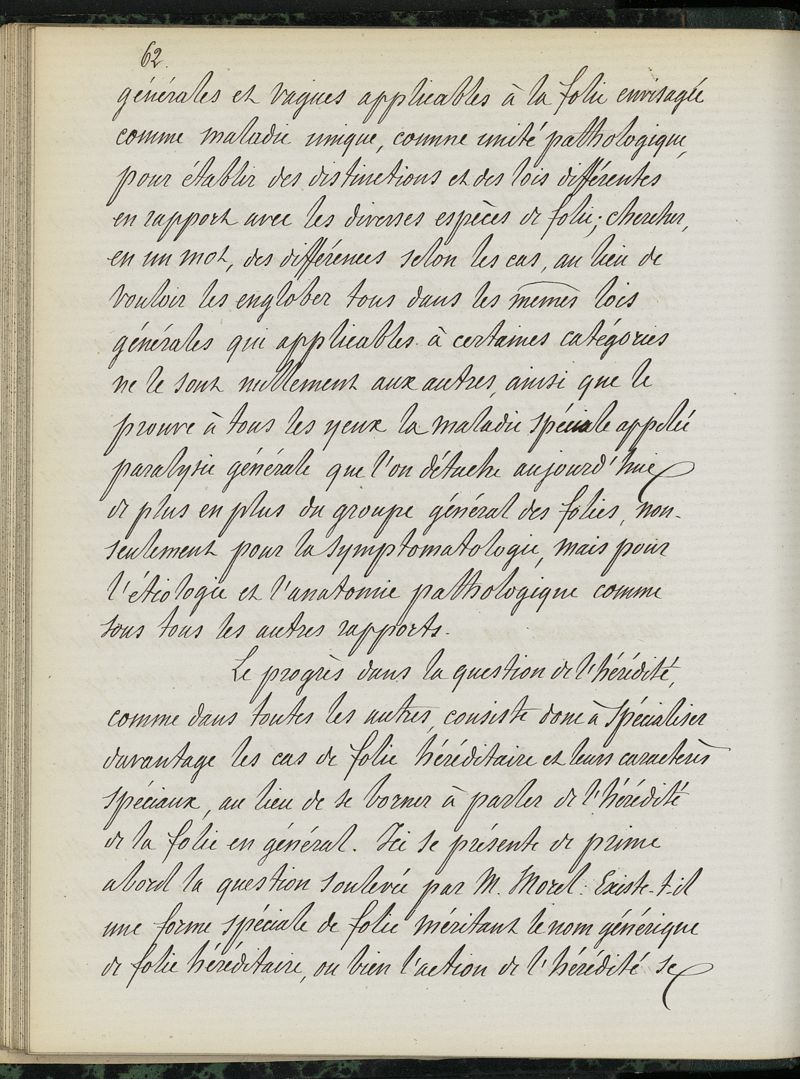 62.
générales et vagues applicables à la folie envisagée
comme maladie unique, comme unité pathologique,
pour établir des distinctions et des lois différentes
en rapport avec les diverses espèces de folie; chercher,
en un mot, des différences selon les cas, au lieu de
vouloir les englober tous dans les mêmes lois
générales qui applicables à certaines catégories
ne le sont nullement aux autres, ainsi que le
prouve à tous les yeux la maladie spéciale appelée
paralysie générale que l'on détache aujourd'hui
de plus en plus du groupe général des folies, non-
seulement pour la symptomatologie, mais pour
l'étiologie et l'anatomie pathologique comme
sous tous les autres rapports.
Le progrès dans la question de l'hérédité,
comme dans toutes les autres, consiste donc à spécialiser
davantage les cas de folie héréditaire et leurs caractères
spéciaux, au lieu de se borner à parler de l'hérédité
de la folie en général. Ici se présente de prime
abord la question soulevée par M. Morel: Existe-t-il
une forme spéciale de folie méritant le nom générique
de folie héréditaire, ou bien l'action de l'hérédité se